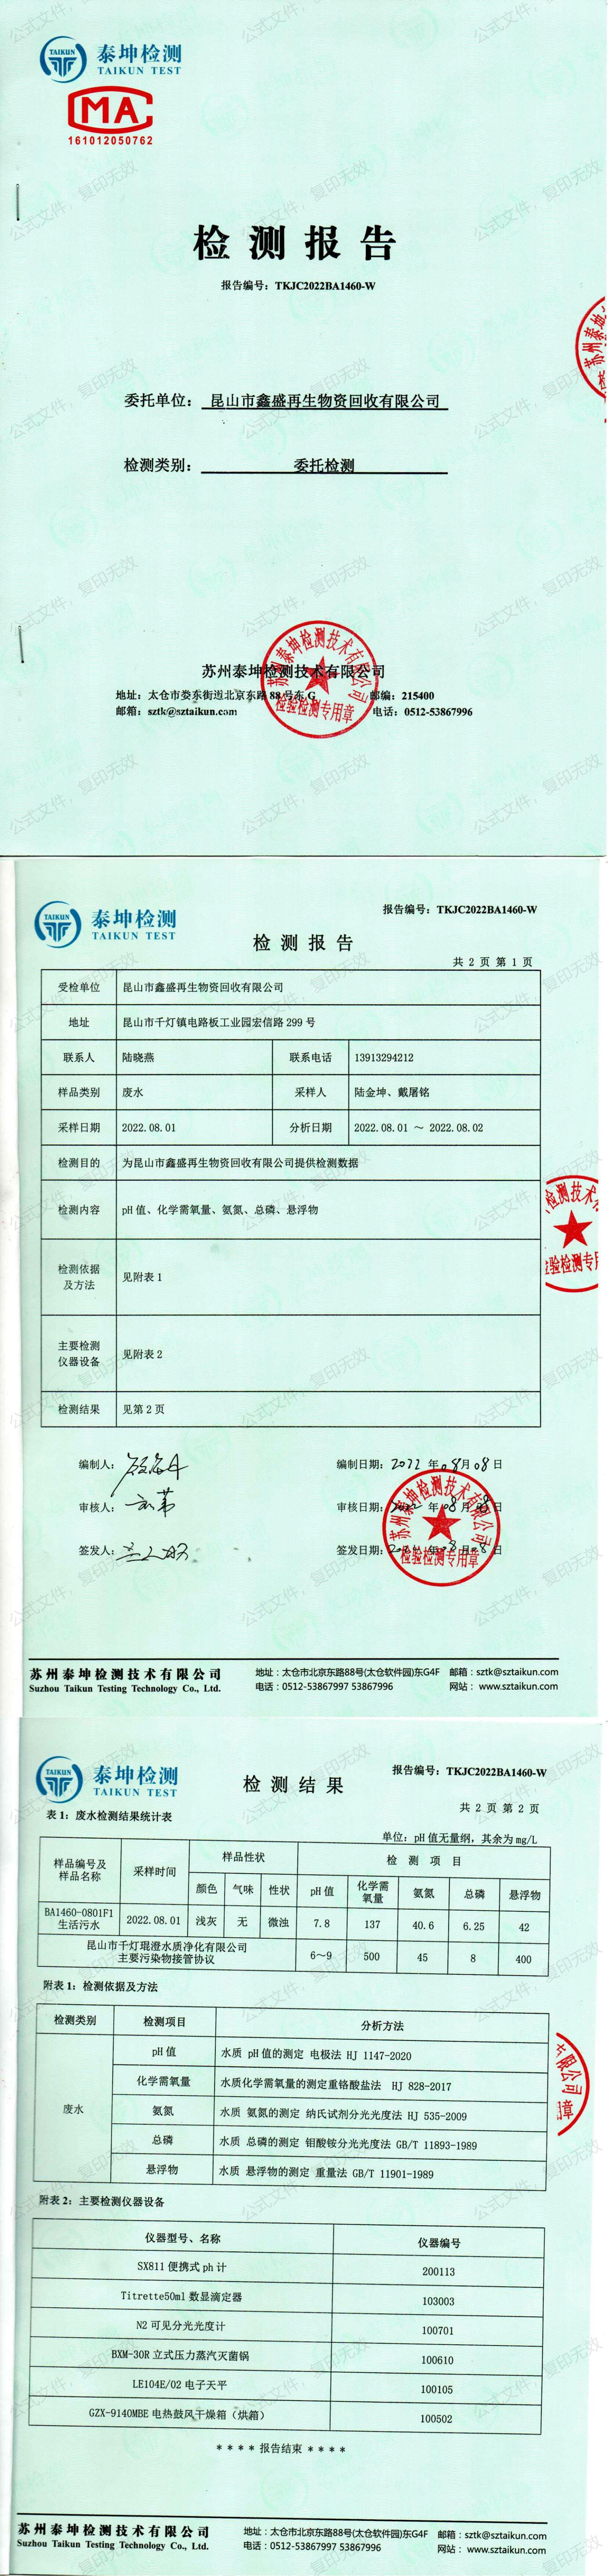 TAIKUN
泰坤检测
TAIKUN TEST
MA
161012050762
检测报告
报告编号：TKJC2022BA1460-W
委托单位：昆山市鑫盛再生物资回收有限公司
检测类别：委托检测
苏州泰坤检测技术有限公司
地址：太仓市娄东街道北京东路 88 号东 G 邮编：215400
邮箱：sztk@sztaikun.com 电话：0512-53867996
检验检测专用章
公式文件，复印无效
TAIKUN
泰坤检测
TAIKUN TEST
报告编号：TKJC2022BA1460-W
检测报告
共 2 页 第 1 页
受检单位 昆山市鑫盛再生物资回收有限公司
地址 昆山市千灯镇电路板工业园宏信路 299 号
联系人 陆晓燕 联系电话 13913294212
样品类别 废水 采样人 陆金坤、戴屠铭
采样日期 2022.08.01 分析日期 2022.08.01 ～ 2022.08.02
检测目的 为昆山市鑫盛再生物资回收有限公司提供检测数据
检测内容 pH 值、化学需氧量、氨氮、总磷、悬浮物
检测依据
及方法 见附表 1
主要检测
仪器设备 见附表 2
检测结果 见第 2 页
编制人： 编制日期：2022 年 08 月 08 日
审核人： 审核日期：2022 年 08 月 08 日
签发人： 签发日期：2022 年 08 月 08 日
苏州泰坤检测技术有限公司
检验检测专用章
苏州泰坤检测技术有限公司 地址：太仓市北京东路88号(太仓软件园)东G4F 邮箱：sztk@sztaikun.com
Suzhou Taikun Testing Technology Co., Ltd. 电话：0512-53867997 53867996 网站：www.sztaikun.com
TAIKUN
泰坤检测
TAIKUN TEST
报告编号：TKJC2022BA1460-W
检测结果
共 2 页 第 2 页
表 1：废水检测结果统计表
单位：pH 值无量纲，其余为 mg/L
样品编号及
样品名称 采样时间 样品性状 检 测 项 目
颜色 气味 性状 pH 值 化学需
氧量 氨氮 总磷 悬浮物
BA1460-0801F1
生活污水 2022.08.01 浅灰 无 微浊 7.8 137 40.6 6.25 42
昆山市千灯琨澄水质净化有限公司
主要污染物接管协议 6～9 500 45 8 400
附表 1：检测依据及方法
检测类别 检测项目 分析方法
废水
pH 值 水质 pH值的测定 电极法 HJ 1147-2020
化学需氧量 水质化学需氧量的测定重铬酸盐法 HJ 828-2017
氨氮 水质 氨氮的测定 纳氏试剂分光光度法 HJ 535-2009
总磷 水质 总磷的测定 钼酸铵分光光度法 GB/T 11893-1989
悬浮物 水质 悬浮物的测定 重量法 GB/T 11901-1989
附表 2：主要检测仪器设备
仪器型号、名称 仪器编号
SX811 便携式 ph 计 200113
Titrette50ml 数显滴定器 103003
N2 可见分光光度计 100701
BXM-30R 立式压力蒸汽灭菌锅 100610
LE104E/02 电子天平 100105
GZX-9140MBE 电热鼓风干燥箱（烘箱） 100502
＊＊＊＊ 报告结束 ＊＊＊＊
苏州泰坤检测技术有限公司 地址：太仓市北京东路88号(太仓软件园)东G4F 邮箱：sztk@sztaikun.com
Suzhou Taikun Testing Technology Co., Ltd. 电话：0512-53867997 53867996 网站：www.sztaikun.com